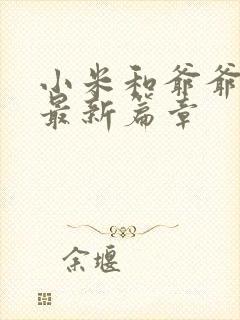 小米和爷爷
最新篇章
余堰